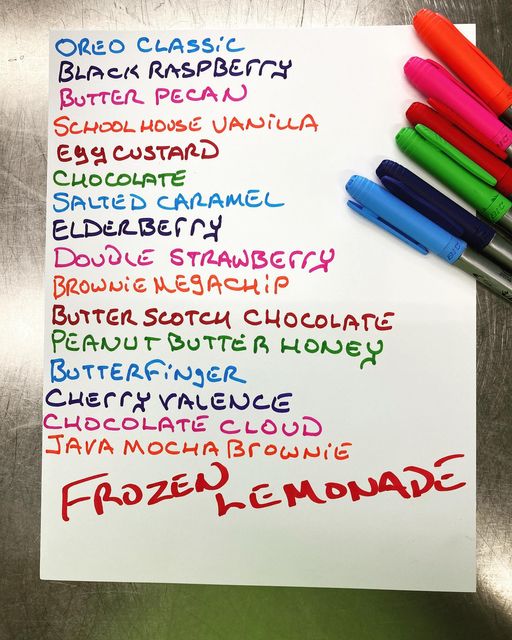 OREO CLASSIC
BLACK RASPBERRY
BUTTER PECAN
SCHOOLHOUSE VANILLA
EGG CUSTARD
CHOCOLATE
SALTED CARAMEL
ELDERBERRY
DOUBLE STRAWBERRY
BROWNIE MEGACHIP
BUTTER SCOTCH CHOCOLATE
PEANUT BUTTER HONEY
BUTTERFINGER
CHERRY VALENCE
CHOCOLATE CLOUD
JAVA MOCHA BROWNIE
FROZEN LEMONADE